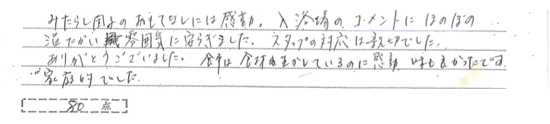 みたらし団子のおもてなしには感動。入浴場のコメントにほのぼの
温たかい雰囲気に安らぎました。スタッフの対応は親切でした。
ありがとうございました。食事は食材を生かしているのに感動 味も良かったです
家庭的でした
80 点